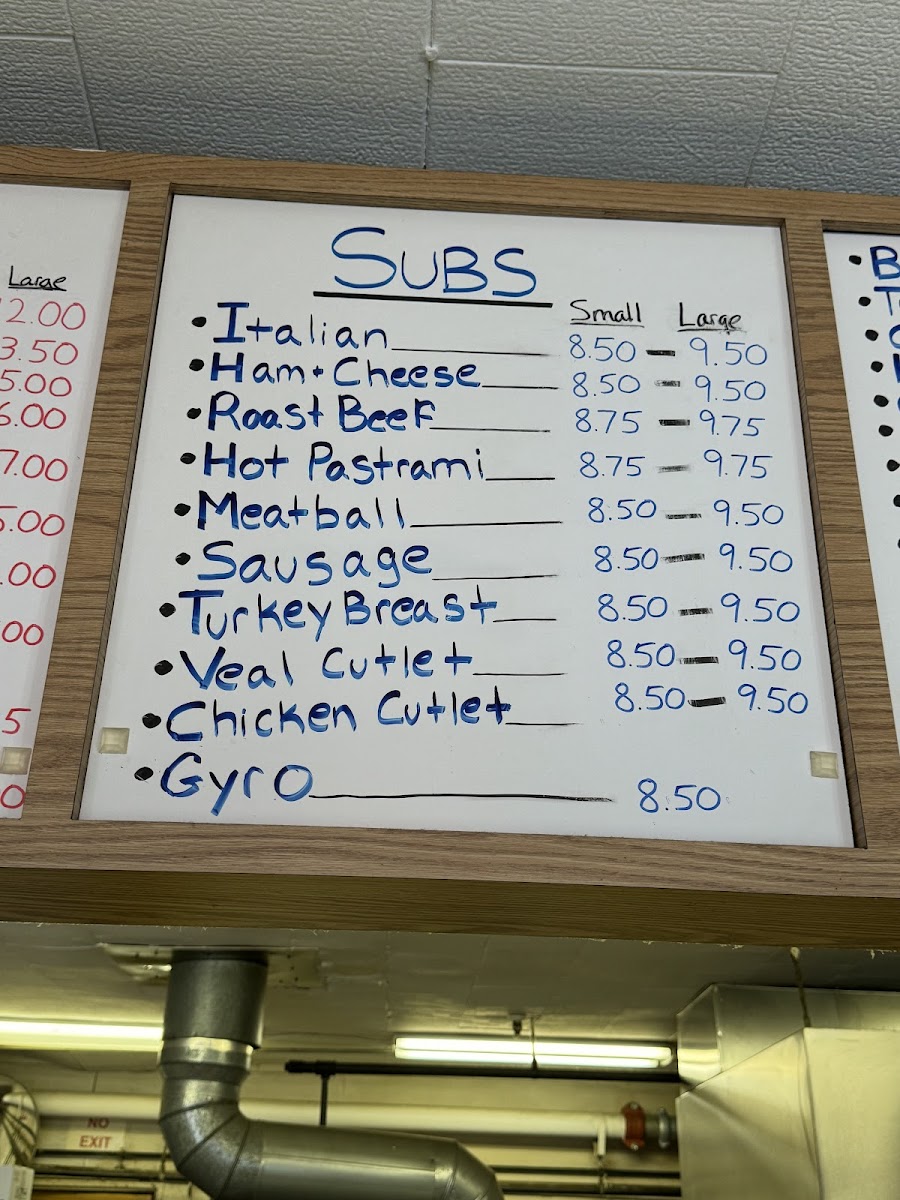 SUBS
Small Large
• Italian 8.50 - 9.50
• Ham + Cheese 8.50 - 9.50
• Roast Beef 8.75 - 9.75
• Hot Pastrami 8.75 - 9.75
• Meatball 8.50 - 9.50
• Sausage 8.50 - 9.50
• Turkey Breast 8.50 - 9.50
• Veal Cutlet 8.50 - 9.50
• Chicken Cutlet 8.50 - 9.50
• Gyro 8.50
Large
2.00
3.50
5.00
6.00
7.00
5.00
.00
00
5
0
• B
NO
EXIT